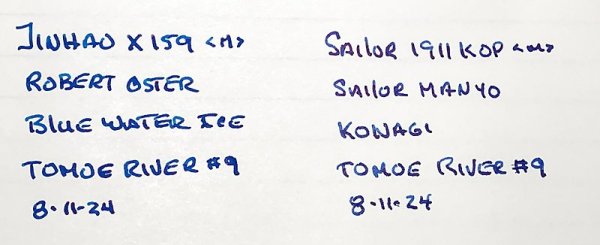 JINHAO X159 <M>
ROBERT OSTER
BLUE WATER ICE
TOMOE RIVER #9
8-11-24
SAILOR 1911 KOP <M>
SAILOR MANYO
KONAGI
TOMOE RIVER #9
8-11-24